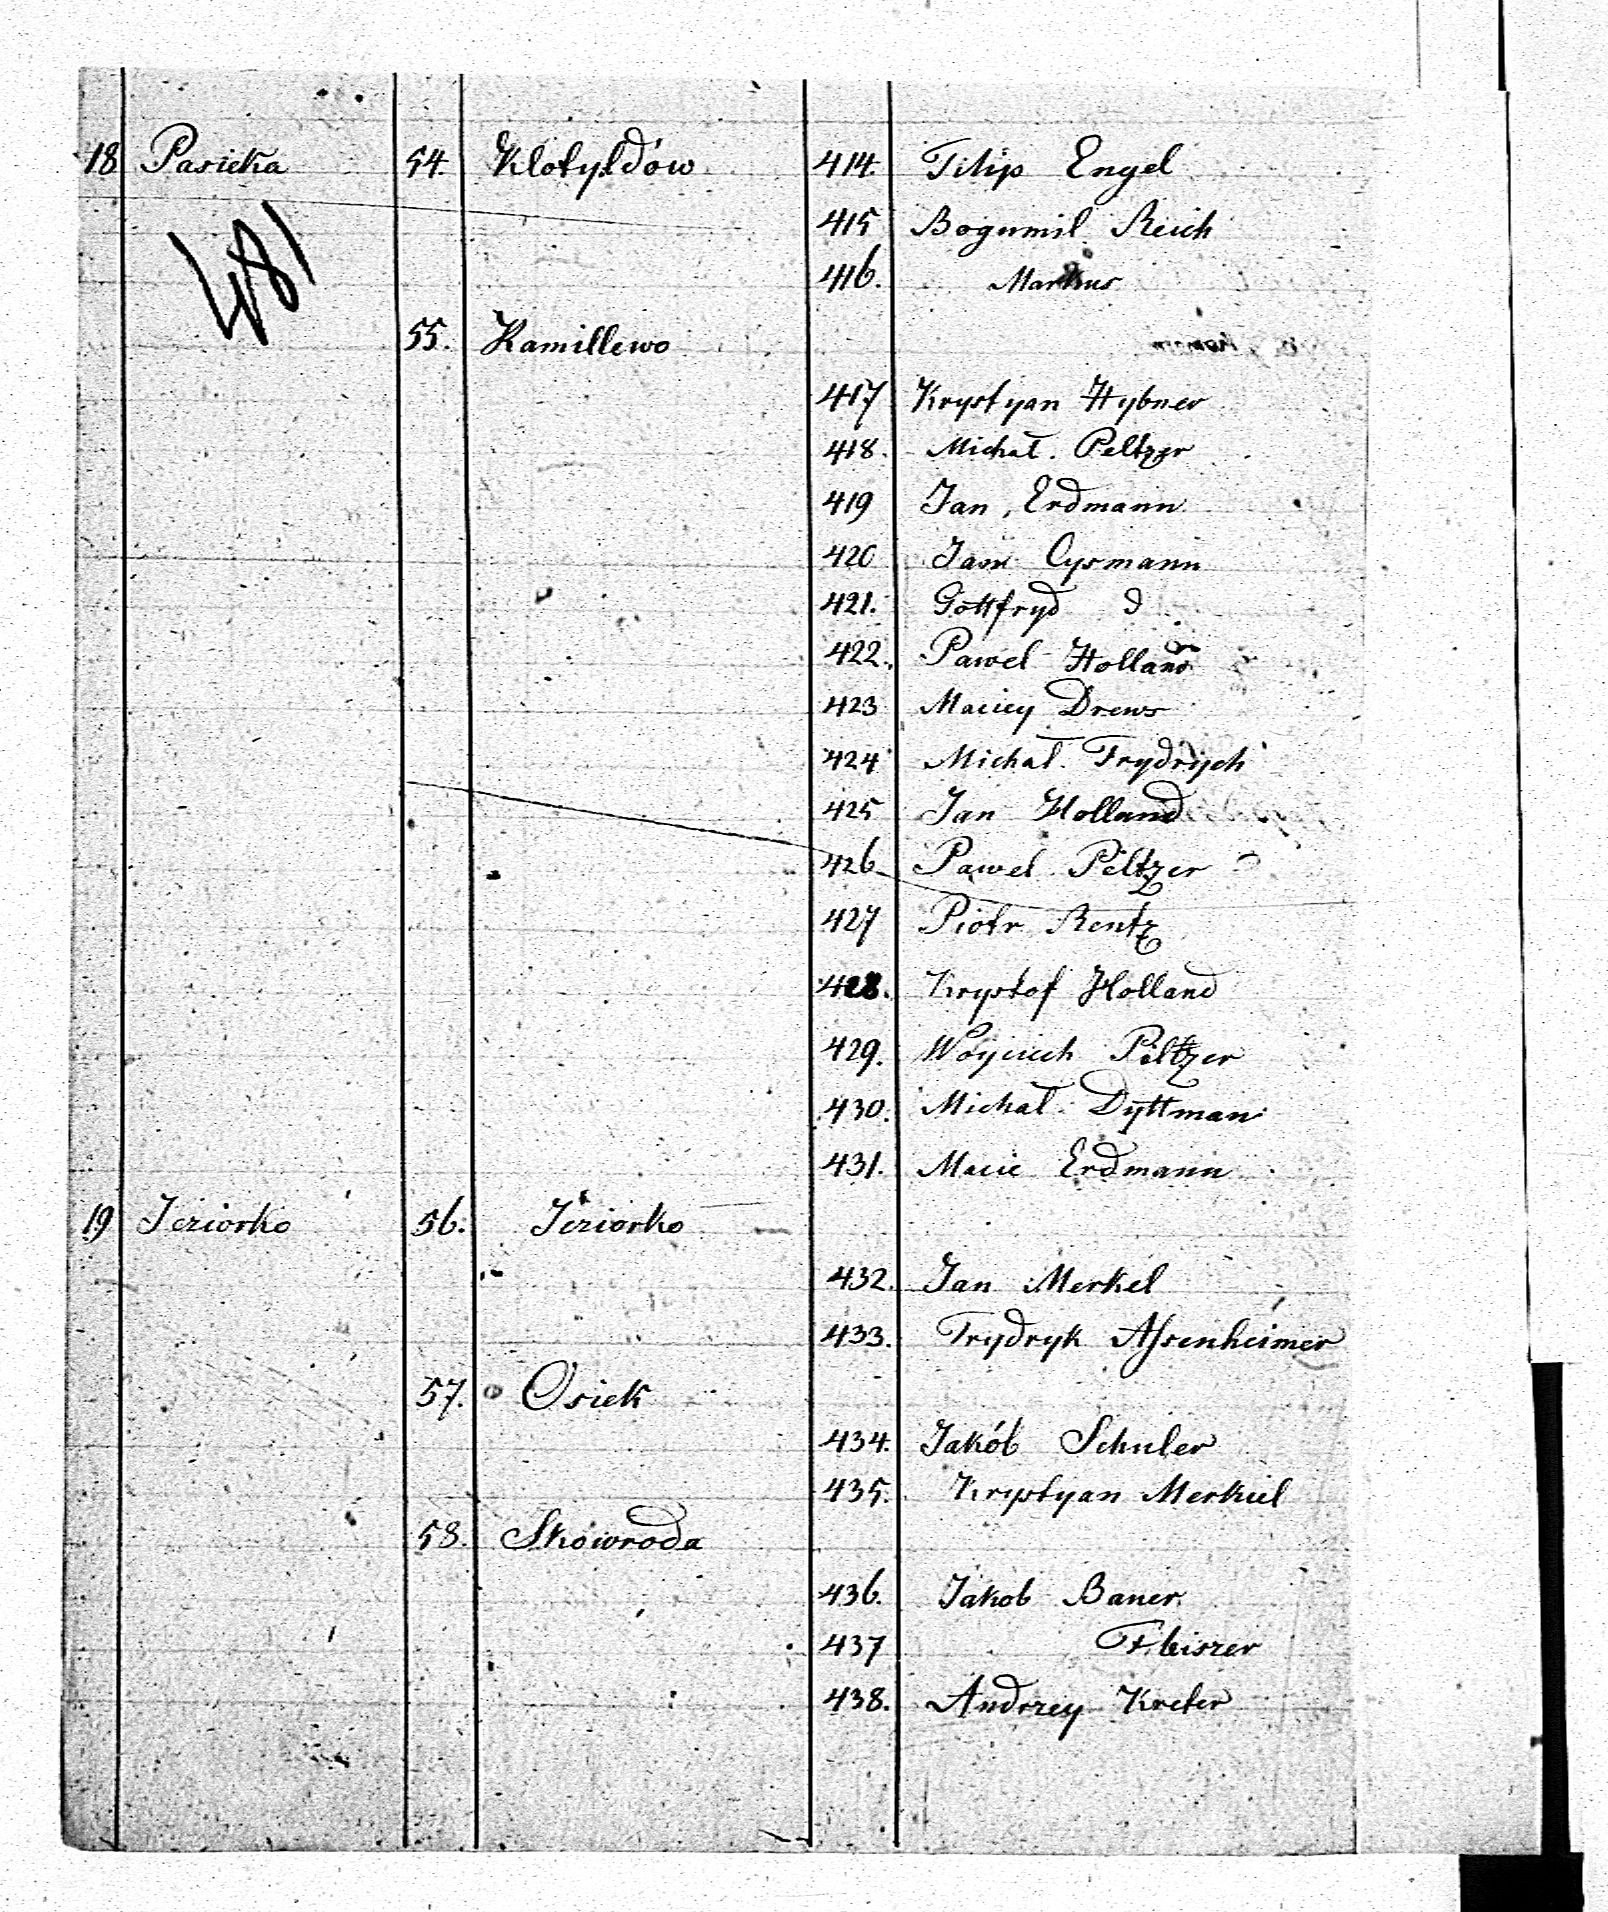 18 Pasieka 54. Klotyldów 414. Filip Engel
415 Bogumil Reich
481
416. Markus
55. Kamillewo
417 Krystyan Hybner
418. Michał Peltzer
419 Jan Erdmann
420 Jan Cysmann
421. Gottfryd d
422. Pawel Holland
423 Maciey Drews
424 Michał Frydrych
425 Jan Holland
426 Pawel Peltzer
427 Piotr Rentz
428. Krystof Holland
429. Woyciech Peltzer
430. Michał Dyttman
431. Macie Erdmann
19 Jeziorko 56. Jeziorko
432. Jan Merkel
433. Frydryk Assenheimer
57. Osiek
434. Jakób Schuler
435. Krystyan Merkiel
58. Skowroda
436. Jakob Bauer
437 Fleiszer
438. Andrzey Kreter